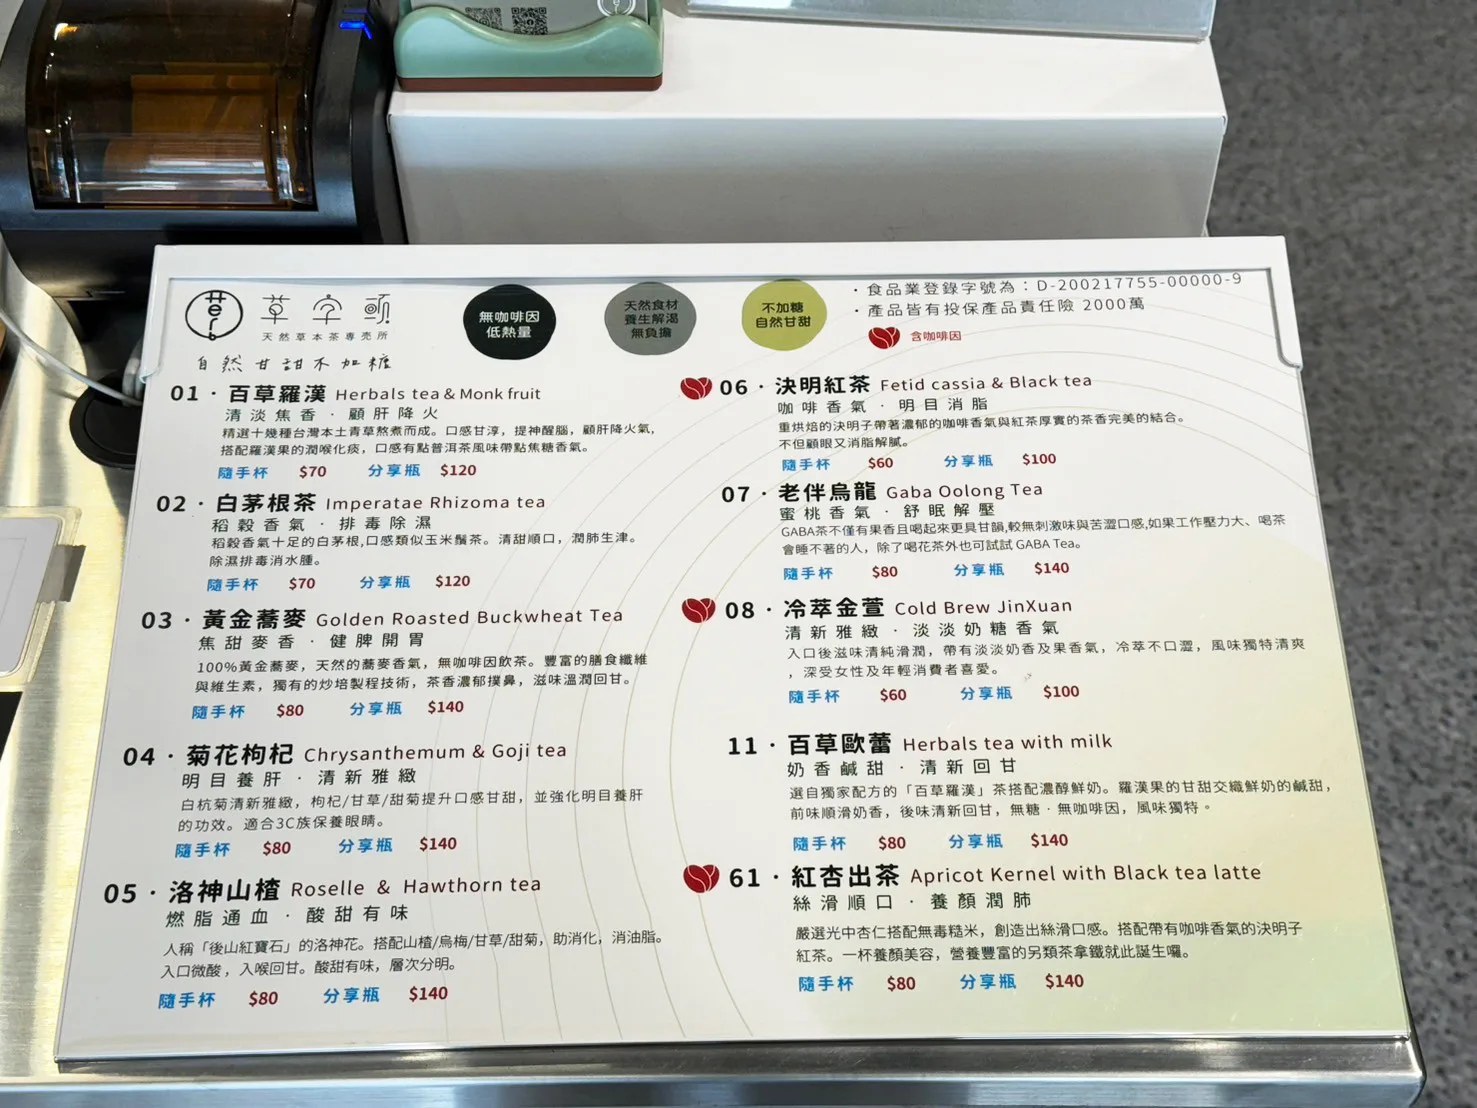 Herb
草字頭
天然草本茶專売所
自然甘甜不加糖
無咖啡因
低熱量
天然食材
養生解渴
無負擔
不加糖
自然甘甜
・食品業登錄字號為：D-200217755-00000-9
・產品皆有投保產品責任險 2000萬
含咖啡因
01・百草羅漢 Herbals tea & Monk fruit
清淡焦香・顧肝降火
精選十幾種台灣本土青草熬煮而成。口感甘淳，提神醒腦，顧肝降火氣，
搭配羅漢果的潤喉化痰，口感有點普洱茶風味帶點焦糖香氣。
隨手杯 $70 分享瓶 $120
02・白茅根茶 Imperatae Rhizoma tea
稻穀香氣・排毒除濕
稻穀香氣十足的白茅根,口感類似玉米鬚茶。清甜順口，潤肺生津。
除濕排毒消水腫。
隨手杯 $70 分享瓶 $120
03・黃金蕎麥 Golden Roasted Buckwheat Tea
焦甜麥香・健脾開胃
100%黃金蕎麥，天然的蕎麥香氣，無咖啡因飲茶。豐富的膳食纖維
與維生素，獨有的炒培製程技術，茶香濃郁撲鼻，滋味溫潤回甘。
隨手杯 $80 分享瓶 $140
04・菊花枸杞 Chrysanthemum & Goji tea
明目養肝・清新雅緻
白杭菊清新雅緻，枸杞/甘草/甜菊提升口感甘甜，並強化明目養肝
的功效。適合3C族保養眼睛。
隨手杯 $80 分享瓶 $140
05・洛神山楂 Roselle & Hawthorn tea
燃脂通血・酸甜有味
人稱「後山紅寶石」的洛神花。搭配山楂/烏梅/甘草/甜菊，助消化，消油脂。
入口微酸，入喉回甘。酸甜有味，層次分明。
隨手杯 $80 分享瓶 $140
06・決明紅茶 Fetid cassia & Black tea
咖啡香氣・明目消脂
重烘焙的決明子帶著濃郁的咖啡香氣與紅茶厚實的茶香完美的結合。
不但顧眼又消脂解膩。
隨手杯 $60 分享瓶 $100
07・老伴烏龍 Gaba Oolong Tea
蜜桃香氣・舒眠解壓
GABA茶不僅有果香且喝起來更具甘韻,較無刺激味與苦澀口感,如果工作壓力大、喝茶
會睡不著的人，除了喝花茶外也可試試 GABA Tea。
隨手杯 $80 分享瓶 $140
08・冷萃金萱 Cold Brew JinXuan
清新雅緻・淡淡奶糖香氣
入口後滋味清純滑潤，帶有淡淡奶香及果香氣，冷萃不口澀，風味獨特清爽
，深受女性及年輕消費者喜愛。
隨手杯 $60 分享瓶 $100
11・百草歐蕾 Herbals tea with milk
奶香鹹甜・清新回甘
選自獨家配方的「百草羅漢」茶搭配濃醇鮮奶。羅漢果的甘甜交織鮮奶的鹹甜，
前味順滑奶香，後味清新回甘，無糖・無咖啡因，風味獨特。
隨手杯 $80 分享瓶 $140
61・紅杏出茶 Apricot Kernel with Black tea latte
絲滑順口・養顏潤肺
嚴選光中杏仁搭配無毒糙米，創造出絲滑口感。搭配帶有咖啡香氣的決明子
紅茶。一杯養顏美容，營養豐富的另類茶拿鐵就此誕生囉。
隨手杯 $80 分享瓶 $140